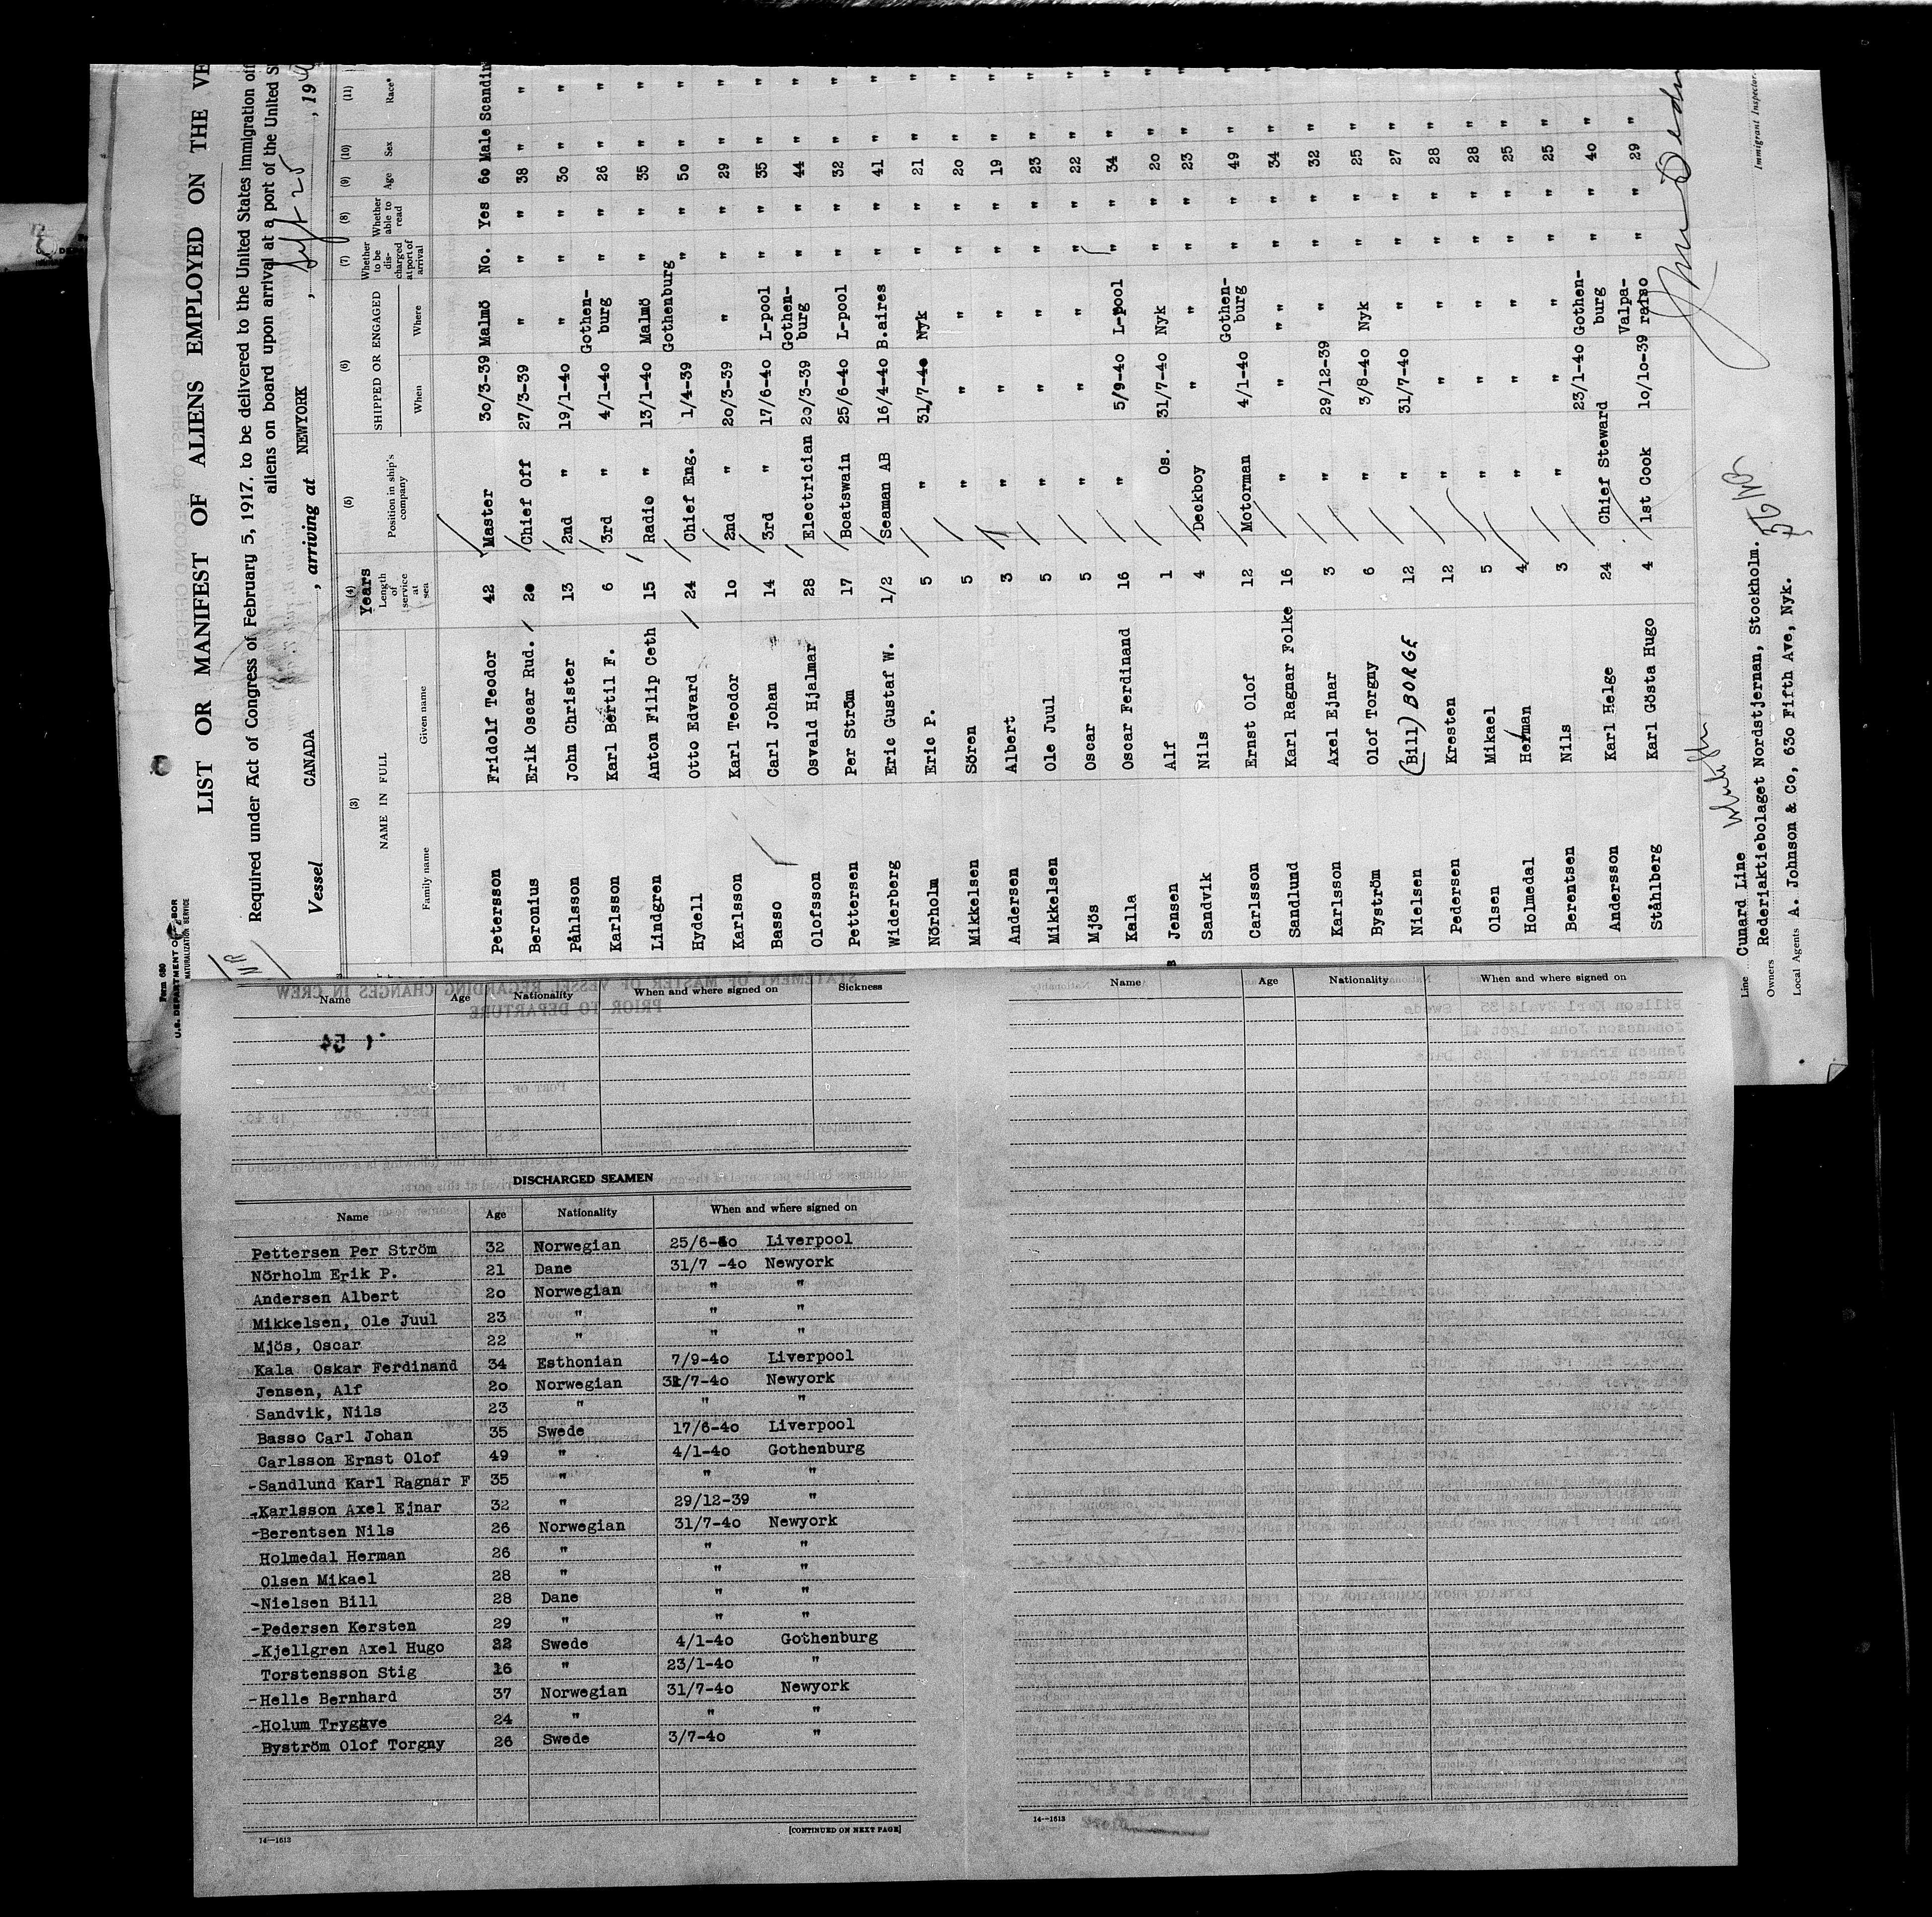 Form 680
U.S. DEPARTMENT OF LABOR
NATURALIZATION SERVICE
LIST OR MANIFEST OF ALIENS EMPLOYED ON THE VE
Required under Act of Congress of February 5, 1917, to be delivered to the United States immigration off
aliens on board upon arrival at a port of the United S
Vessel CANADA , arriving at NEWYORK , Sept 25 , 19
(3) (4) (5) (6) (7) (8) (9) (10) (11)
NAME IN FULL Years Length of service at sea Position in ship's company SHIPPED OR ENGAGED Whether to be discharged at port of arrival Whether able to read Age Sex Race*
Family name Given name When Where
Petersson Fridolf Teodor 42 Master 30/3-39 Malmö No. Yes 60 Male Scandin
Beronius Erik Oscar Rud. 20 Chief Off 27/3-39 " " " 38 " "
Påhlsson John Christer 13 2nd " 19/1-40 " " " 30 " "
Karlsson Karl Bertil F. 6 3rd " 4/1-40 Gothen-burg " " 26 " "
Lindgren Anton Filip Ceth 15 Radio " 13/1-40 Malmö " " 35 " "
Hydell Otto Edvard 24 Chief Eng. 1/4-39 Gothenburg " " 50 " "
Karlsson Karl Teodor 10 2nd " 20/3-39 " " " 29 " "
Basso Carl Johan 14 3rd " 17/6-40 L-pool " " 35 " "
Olofsson Osvald Hjalmar 28 Electrician 20/3-39 Gothen-burg " " 44 " "
Pettersen Per Ström 17 Boatswain 25/6-40 L-pool " " 32 " "
Widerberg Eric Gustaf W. 1/2 Seaman AB 16/4-40 B.aires " " 41 " "
Nörholm Eric P. 5 " 31/7-40 Nyk " " 21 " "
Mikkelsen Sören 5 " " " " " 20 " "
Andersen Albert 3 " " " " " 19 " "
Mikkelsen Ole Juul 5 " " " " " 23 " "
Mjös Oscar 5 " " " " " 22 " "
Kalla Oscar Ferdinand 16 " 5/9-40 L-pool " " 34 " "
Jensen Alf 1 Os. 31/7-40 Nyk " " 20 " "
Sandvik Nils 4 Deckboy " " " " 23 " "
Carlsson Ernst Olof 12 Motorman 4/1-40 Gothen-burg " " 49 " "
Sandlund Karl Ragnar Folke 16 " " " " " " 34 " "
Karlsson Axel Ejnar 3 " 29/12-39 " " " 32 " "
Byström Olof Torgny 6 " 3/8-40 Nyk " " 25 " "
Nielsen (Bill) BORGE 12 " 31/7-40 " " " 27 " "
Pedersen Kresten 12 " " " " " 28 " "
Olsen Mikael 5 " " " " " 28 " "
Holmedal Herman 4 " " " " " 25 " "
Berentsen Nils 3 " " " " " 25 " "
Andersson Karl Helge 24 Chief Steward 23/1-40 Gothen-burg " " 40 " "
Ståhlberg Karl Gösta Hugo 4 1st Cook 10/10-39 Valpa-raiso " " 29 " "
Line Cunard Line
Owners Rederiaktiebolaget Nordstjernan, Stockholm.
Local Agents A. Johnson & Co, 630 Fifth Ave, Nyk.
Immigrant Inspector.
Name Age Nationality When and where signed on Sickness
DISCHARGED SEAMEN
Name Age Nationality When and where signed on
Pettersen Per Ström 32 Norwegian 25/6-40 Liverpool
Nörholm Erik P. 21 Dane 31/7 -40 Newyork
Andersen Albert 20 Norwegian " "
Mikkelsen, Ole Juul 23 " " "
Mjös, Oscar 22 " " "
Kala Oskar Ferdinand 34 Esthonian 7/9-40 Liverpool
Jensen, Alf 20 Norwegian 31/7-40 Newyork
Sandvik, Nils 23 " " "
Basso Carl Johan 35 Swede 17/6-40 Liverpool
Carlsson Ernst Olof 49 " 4/1-40 Gothenburg
-Sandlund Karl Ragnar F 35 " " "
-Karlsson Axel Ejnar 32 " 29/12-39 "
-Berentsen Nils 26 Norwegian 31/7-40 Newyork
Holmedal Herman 26 " " "
Olsen Mikael 28 " " "
-Nielsen Bill 28 Dane " "
-Pedersen Kersten 29 " " "
-Kjellgren Axel Hugo 22 Swede 4/1-40 Gothenburg
Torstensson Stig 16 " 23/1-40 "
-Helle Bernhard 37 Norwegian 31/7-40 Newyork
-Holum Tryggve 24 " " "
Byström Olof Torgny 26 Swede 3/7-40 "
14—1613 [CONTINUED ON NEXT PAGE]
Name Age Nationality When and where signed on
14—1613